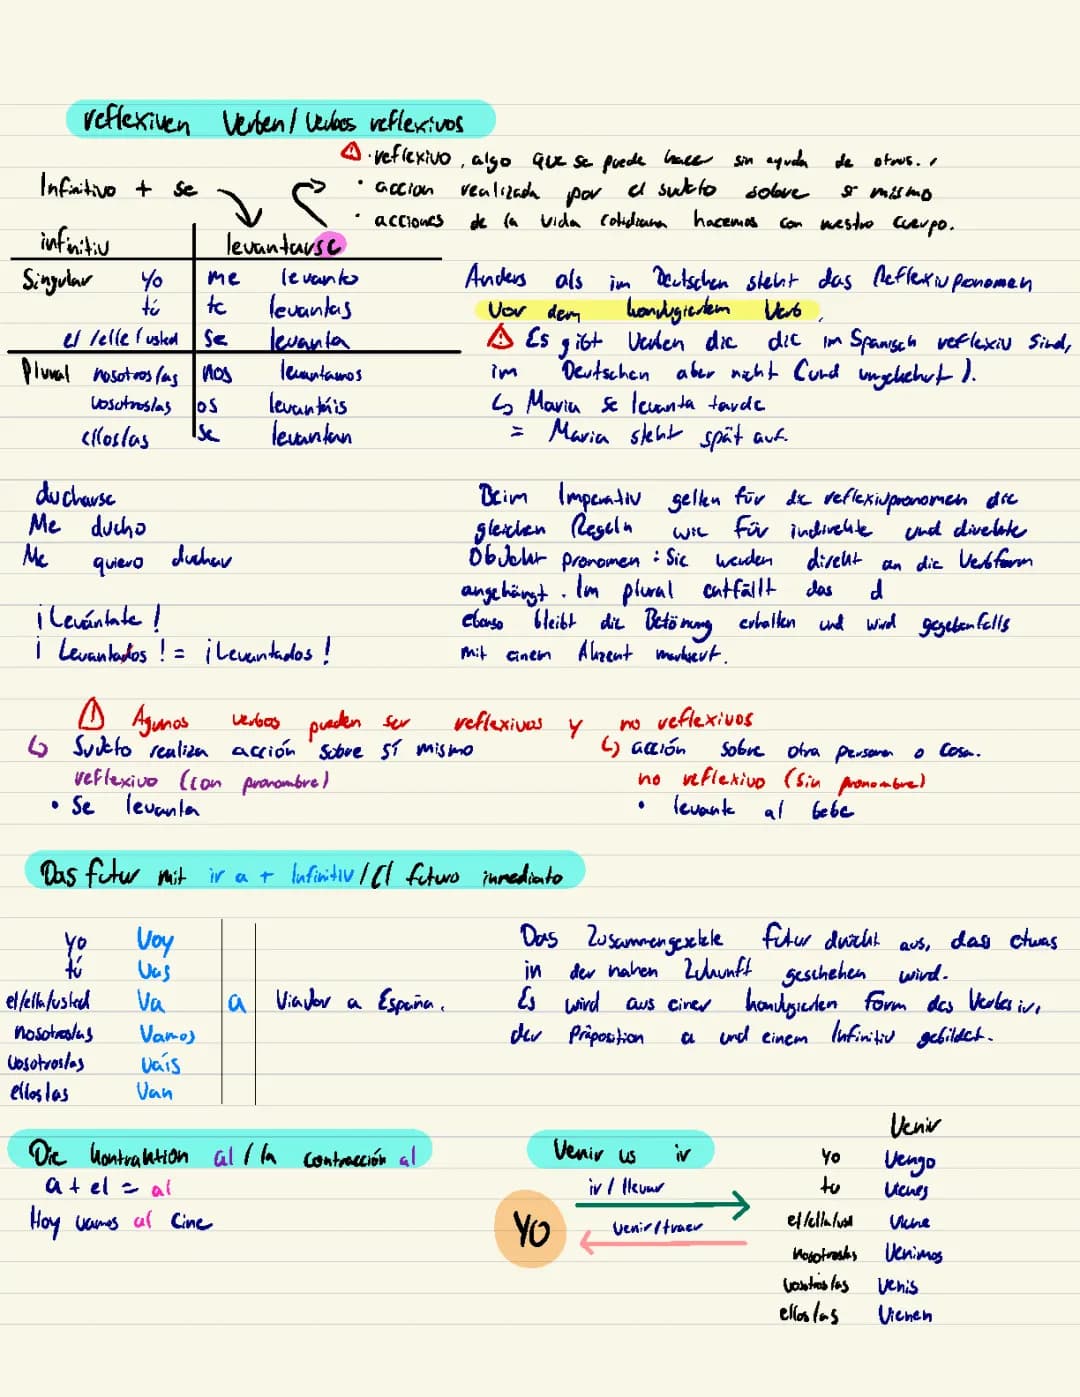 reflexiven Verben / Verbos reflexivos
⚠ · reflexivo, algo que se puede hacer sin ayuda de otros.
Infinitivo + se
· accion realizada por el sujeto sobre si mismo
· acciones de la vida cotidiana hacemos con nuestro cuerpo.
infinitiv levantarse
Singular yo me levanto
tú te levantas
el /elle / usted se levanta
Plural nosotros/as nos levantamos
vosotros/as os levantáis
ellos/as se levantan
Anders als im Deutschen steht das Reflexivpronomen
vor dem kondugiertem Verb,
⚠ Es gibt Verben die die im Spanisch reflexiv sind,
im Deutschen aber nicht (und umgekehrt).
↳ Maria se levanta tarde
= Maria steht spät auf.
ducharse
Me ducho
Me quiero duchar
¡Levántate!
¡Levantados! = ¡Levantados!
Beim Imperativ gelten für die reflexivpronomen die
gleichen Regeln wie für indirekte und direkte
Objekt pronomen : Sie werden direkt an die Verbform
angehängt. Im plural entfällt das d
ebenso bleibt die Betönung erhalten und wird gegebenfalls
mit einem Akzent markiert.
⚠ Agunos verbos pueden ser reflexivos y no reflexivos
↳ Sujeto realiza acción sobre sí mismo
reflexivo (con pronombre)
• Se levanta
↳ acción sobre otra persona o cosa.
no reflexivo (sin pronombre)
• levante al bebe
Das futur mit ir a + Infinitiv / El futuro inmediato
yo Voy
tú Vas
el/ella/usted Va a Viador a España.
nosotros/as Vamos
Vosotros/as Vaís
ellos/as Van
Das Zusammengesetzte futur drückt aus, dass etwas
in der nahen Zukunft geschehen wird.
Es wird aus einer kondugierten Form des Verbes ir,
der Präposition a und einem Infinitiv gebildet.
Die Kontraktion al / la contracción al
a + el = al
Hoy vamos al cine
Venir vs ir
ir / llevar
YO
venir/traer
Venir
yo Vengo
tu Vienes
el/ella/usd Viene
nosotros/as Venimos
vosotros/as Venis
ellos/as Vienen